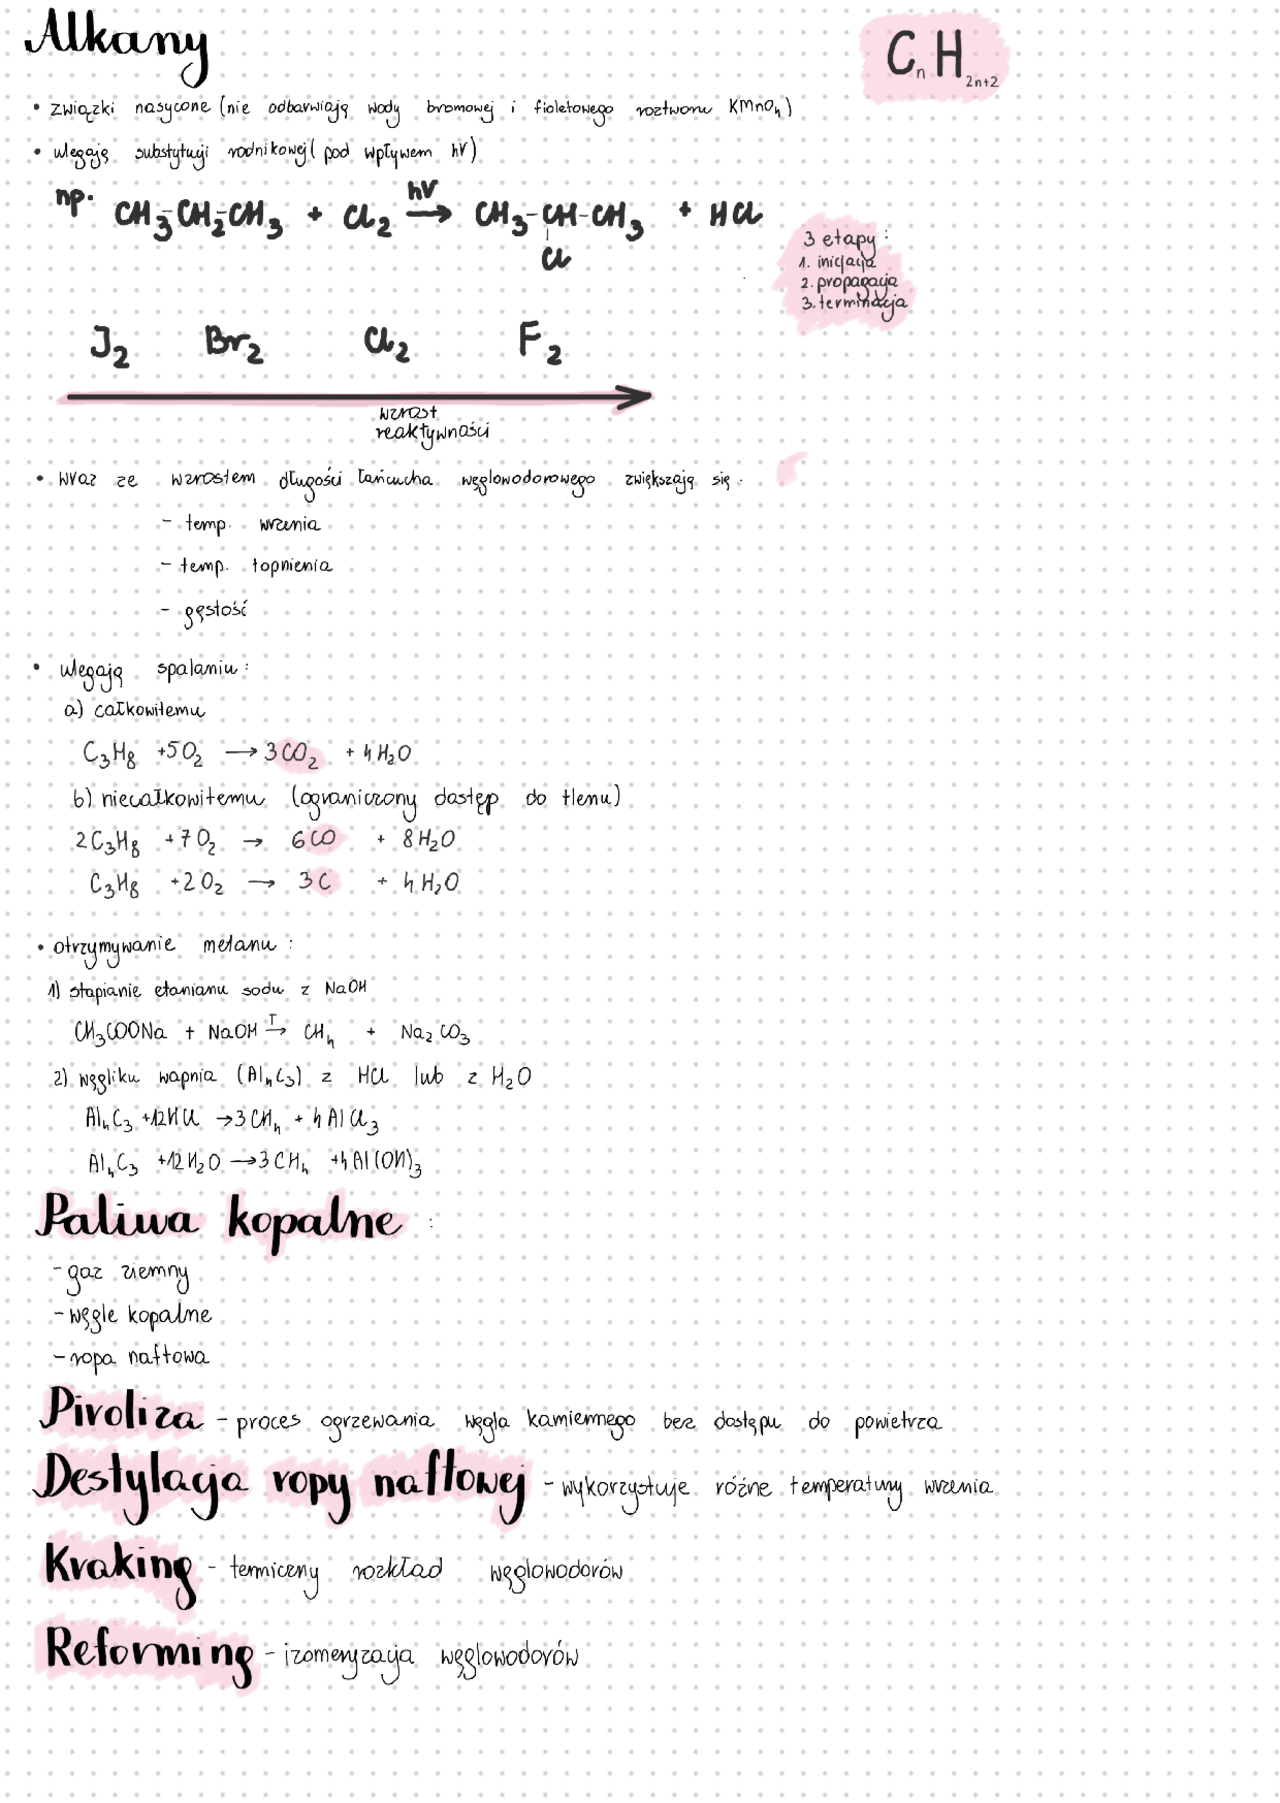 Alkany
CnH2n+2
• związki nasycone (nie odbarwiają wody bromowej i fioletowego roztworu KMnO4)
• ulegają substytucji rodnikowej (pod wpływem hV)
np. CH3-CH2-CH3 + Cl2 hV→ CH3-CH-CH3 + HCl
Cl
3 etapy:
1. inicjacja
2. propagacja
3. terminacja
J2 Br2 Cl2 F2
wzrost
reaktywności
• wraz ze wzrostem długości łańcucha węglowodorowego zwiększają się.
- temp. wrzenia
- temp. topnienia
- gęstość
• ulegają spalaniu:
a) całkowitemu
C3H8 +5O2 → 3CO2 + 4H2O
b) niecałkowitemu (ograniczony dostęp do tlenu)
2C3H8 +7O2 → 6CO + 8H2O
C3H8 +2O2 → 3C + 4H2O
• otrzymywanie metanu:
1) stapianie etanianu sodu z NaOH
CH3COONa + NaOH T→ CH4 + Na2CO3
2) węgliku wapnia (Al4C3) z HCl lub z H2O
Al4C3 +12HCl →3CH4 + 4AlCl3
Al4C3 +12H2O →3CH4 +4Al(OH)3
Paliwa kopalne:
- gaz ziemny
- węgle kopalne
- ropa naftowa
Piroliza - proces ogrzewania węgla kamiennego bez dostępu do powietrza
Destylacja ropy naftowej - wykorzystuje różne temperatury wrzenia
Kraking - termiczny rozkład węglowodorów
Reforming - izomeryzacja węglowodorów